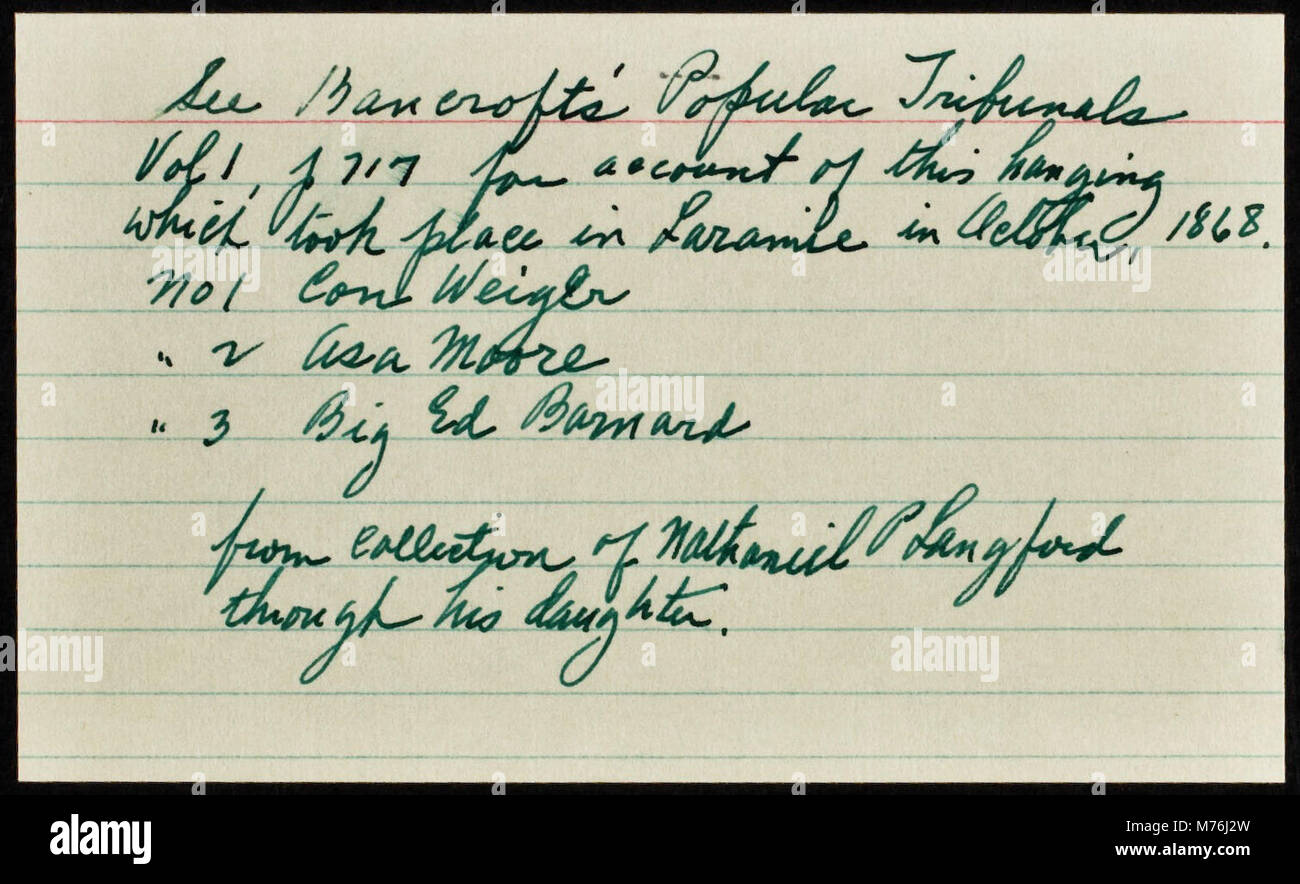 See Bancroft's Popular Tribunals
Vol 1, p 717 for account of this hanging
which took place in Laramie in October, 1868.
No 1 Con Weiger
" 2 Asa Moore
" 3 Big Ed Barnard
from collection of Nathaniel P Langford
through his daughter.
alamy
Image ID: M76J2W
www.alamy.com